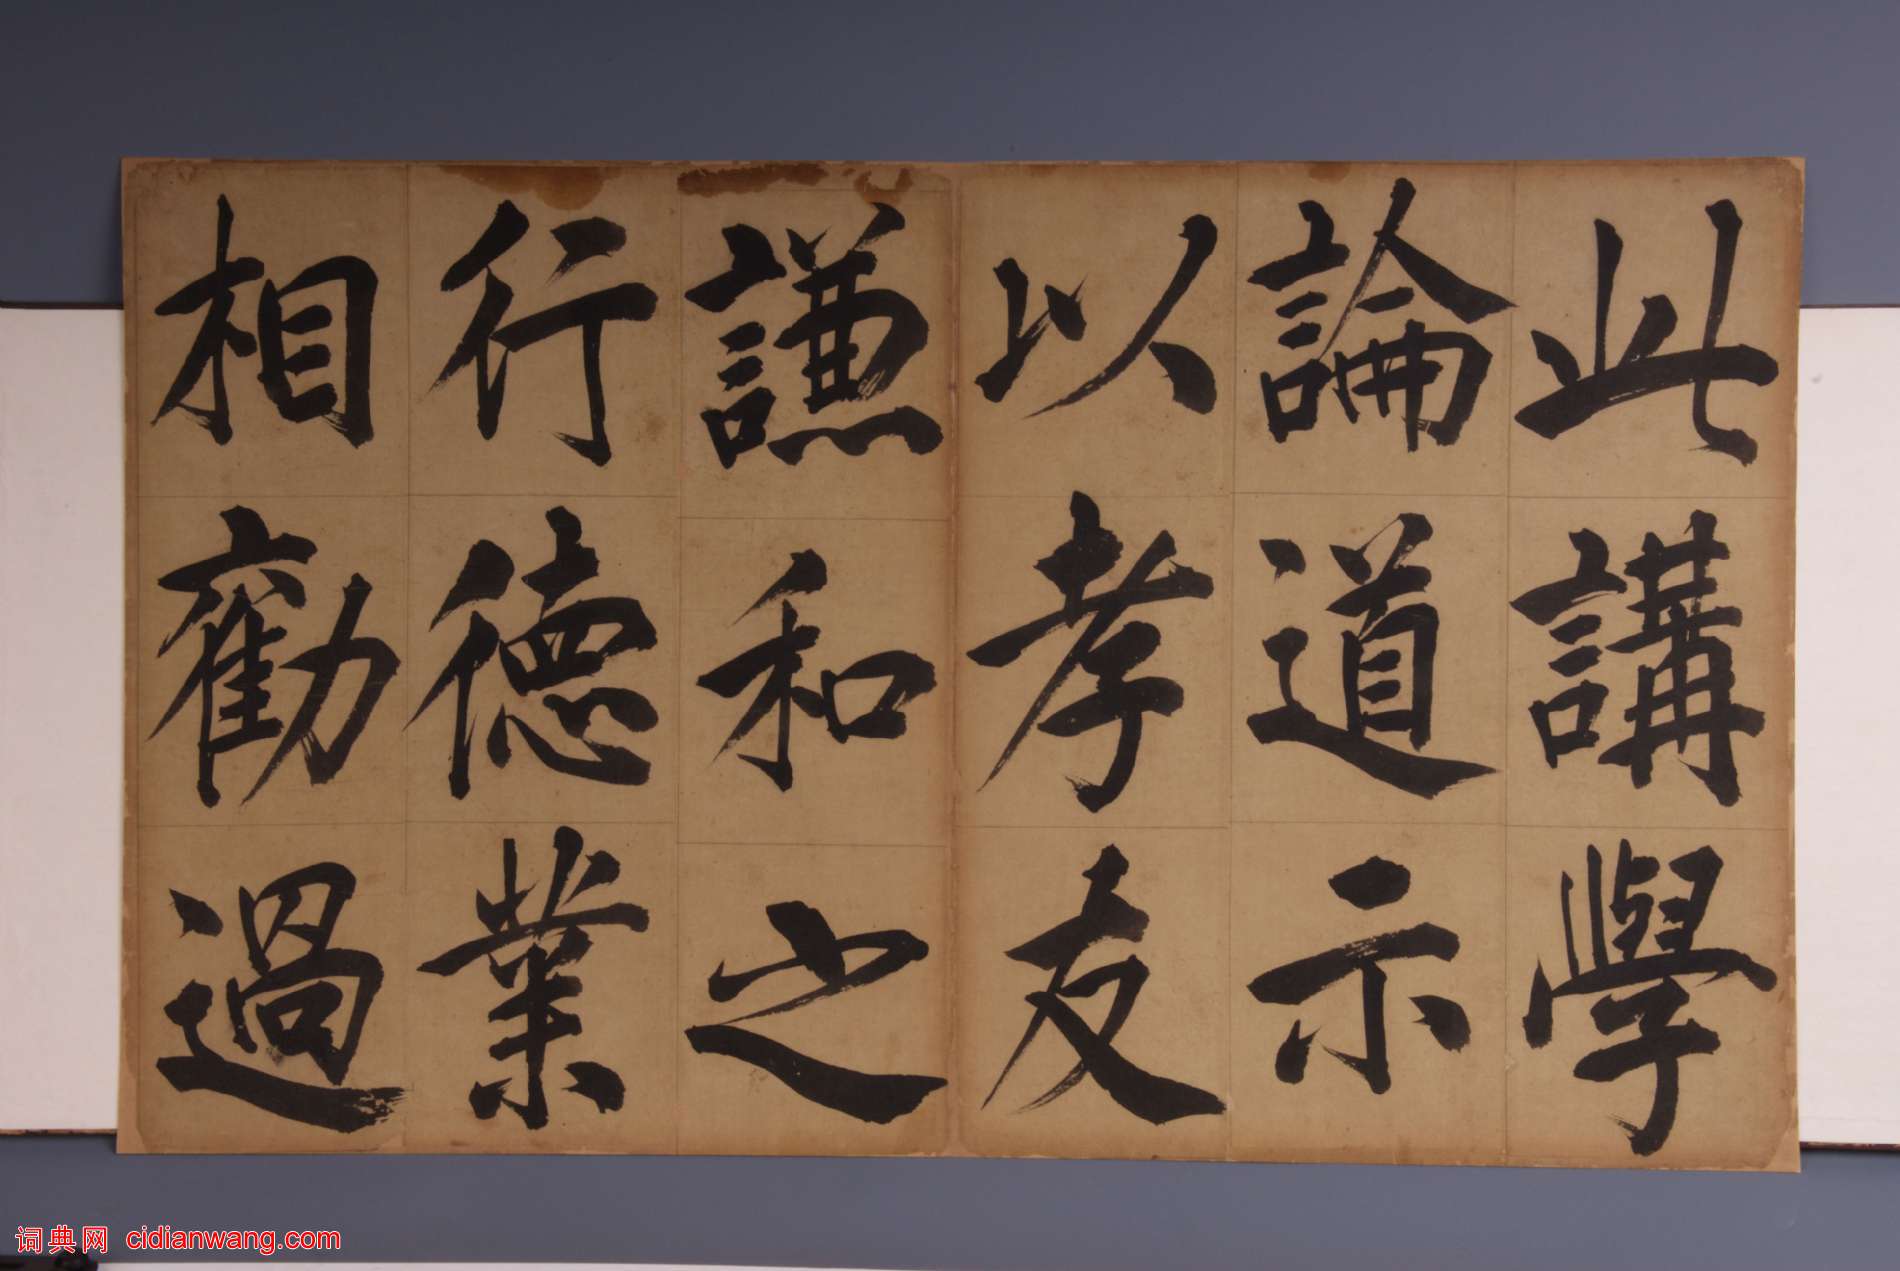 此講學
論道示
以孝友
謙和之
行德業
相勸過
词典网 cidianwang.com